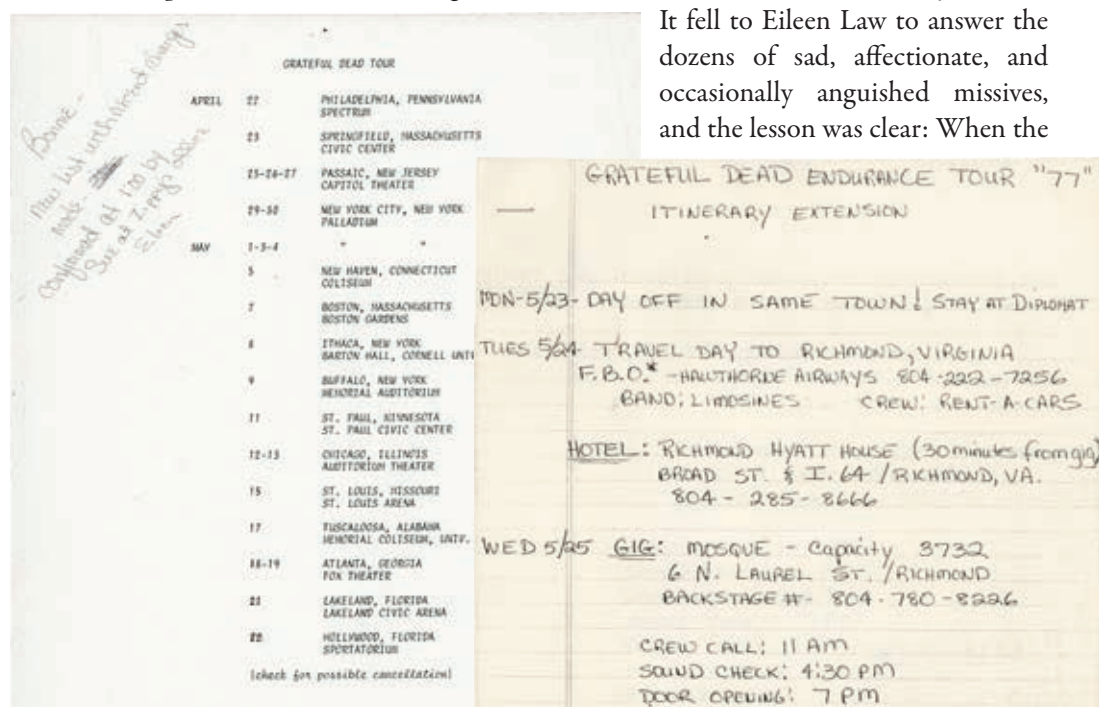 It fell to Eileen Law to answer the
dozens of sad, affectionate, and
occasionally anguished missives,
and the lesson was clear: When the
Bonnie -
New list with recent changes
made -
Confirmed at 1:00 by
Sue at Zippy
Eileen
GRATEFUL DEAD TOUR
APRIL 22 PHILADELPHIA, PENNSYLVANIA
SPECTRUM
23 SPRINGFIELD, MASSACHUSETTS
CIVIC CENTER
25-26-27 PASSAIC, NEW JERSEY
CAPITOL THEATER
29-30 NEW YORK CITY, NEW YORK
PALLADIUM
MAY 1-3-4 " "
5 NEW HAVEN, CONNECTICUT
COLISEUM
7 BOSTON, MASSACHUSETTS
BOSTON GARDENS
8 ITHACA, NEW YORK
BARTON HALL, CORNELL UNIV
9 BUFFALO, NEW YORK
MEMORIAL AUDITORIUM
11 ST. PAUL, MINNESOTA
ST. PAUL CIVIC CENTER
12-13 CHICAGO, ILLINOIS
AUDITORIUM THEATER
15 ST. LOUIS, MISSOURI
ST. LOUIS ARENA
17 TUSCALOOSA, ALABAMA
MEMORIAL COLISEUM, UNIV.
18-19 ATLANTA, GEORGIA
FOX THEATER
21 LAKELAND, FLORIDA
LAKELAND CIVIC ARENA
22 HOLLYWOOD, FLORIDA
SPORTATORIUM
(check for possible cancellation)
GRATEFUL DEAD ENDURANCE TOUR "77"
ITINERARY EXTENSION
MON-5/23- DAY OFF IN SAME TOWN! STAY AT DIPLOMAT
TUES 5/24 TRAVEL DAY TO RICHMOND, VIRGINIA
F.B.O.* -HAWTHORNE AIRWAYS 804-222-7256
BAND: LIMOSINES CREW: RENT-A-CARS
HOTEL: RICHMOND HYATT HOUSE (30 minutes from gig)
BROAD ST. & I. 64 / RICHMOND, VA.
804 - 285 - 8666
WED 5/25 GIG: MOSQUE - Capacity 3732
6 N. LAUREL ST. / RICHMOND
BACKSTAGE #- 804-780-8226
CREW CALL: 11 AM
SOUND CHECK: 4:30 PM
DOOR OPENING: 7 PM